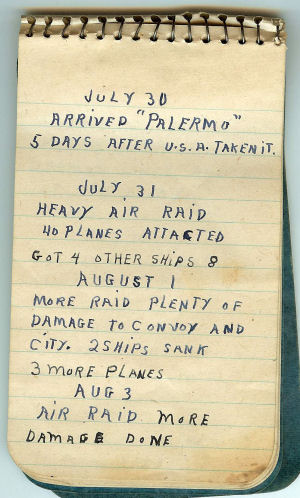 JULY 30
ARRIVED "PALERMO"
5 DAYS AFTER U.S.A. TAKEN IT.
JULY 31
HEAVY AIR RAID
40 PLANES ATTACTED
GOT 4 OTHER SHIPS 8
AUGUST 1
MORE RAID PLENTY OF
DAMAGE TO CONVOY AND
CITY. 2 SHIPS SANK
3 MORE PLANES
AUG 3
AIR RAID MORE
DAMAGE DONE